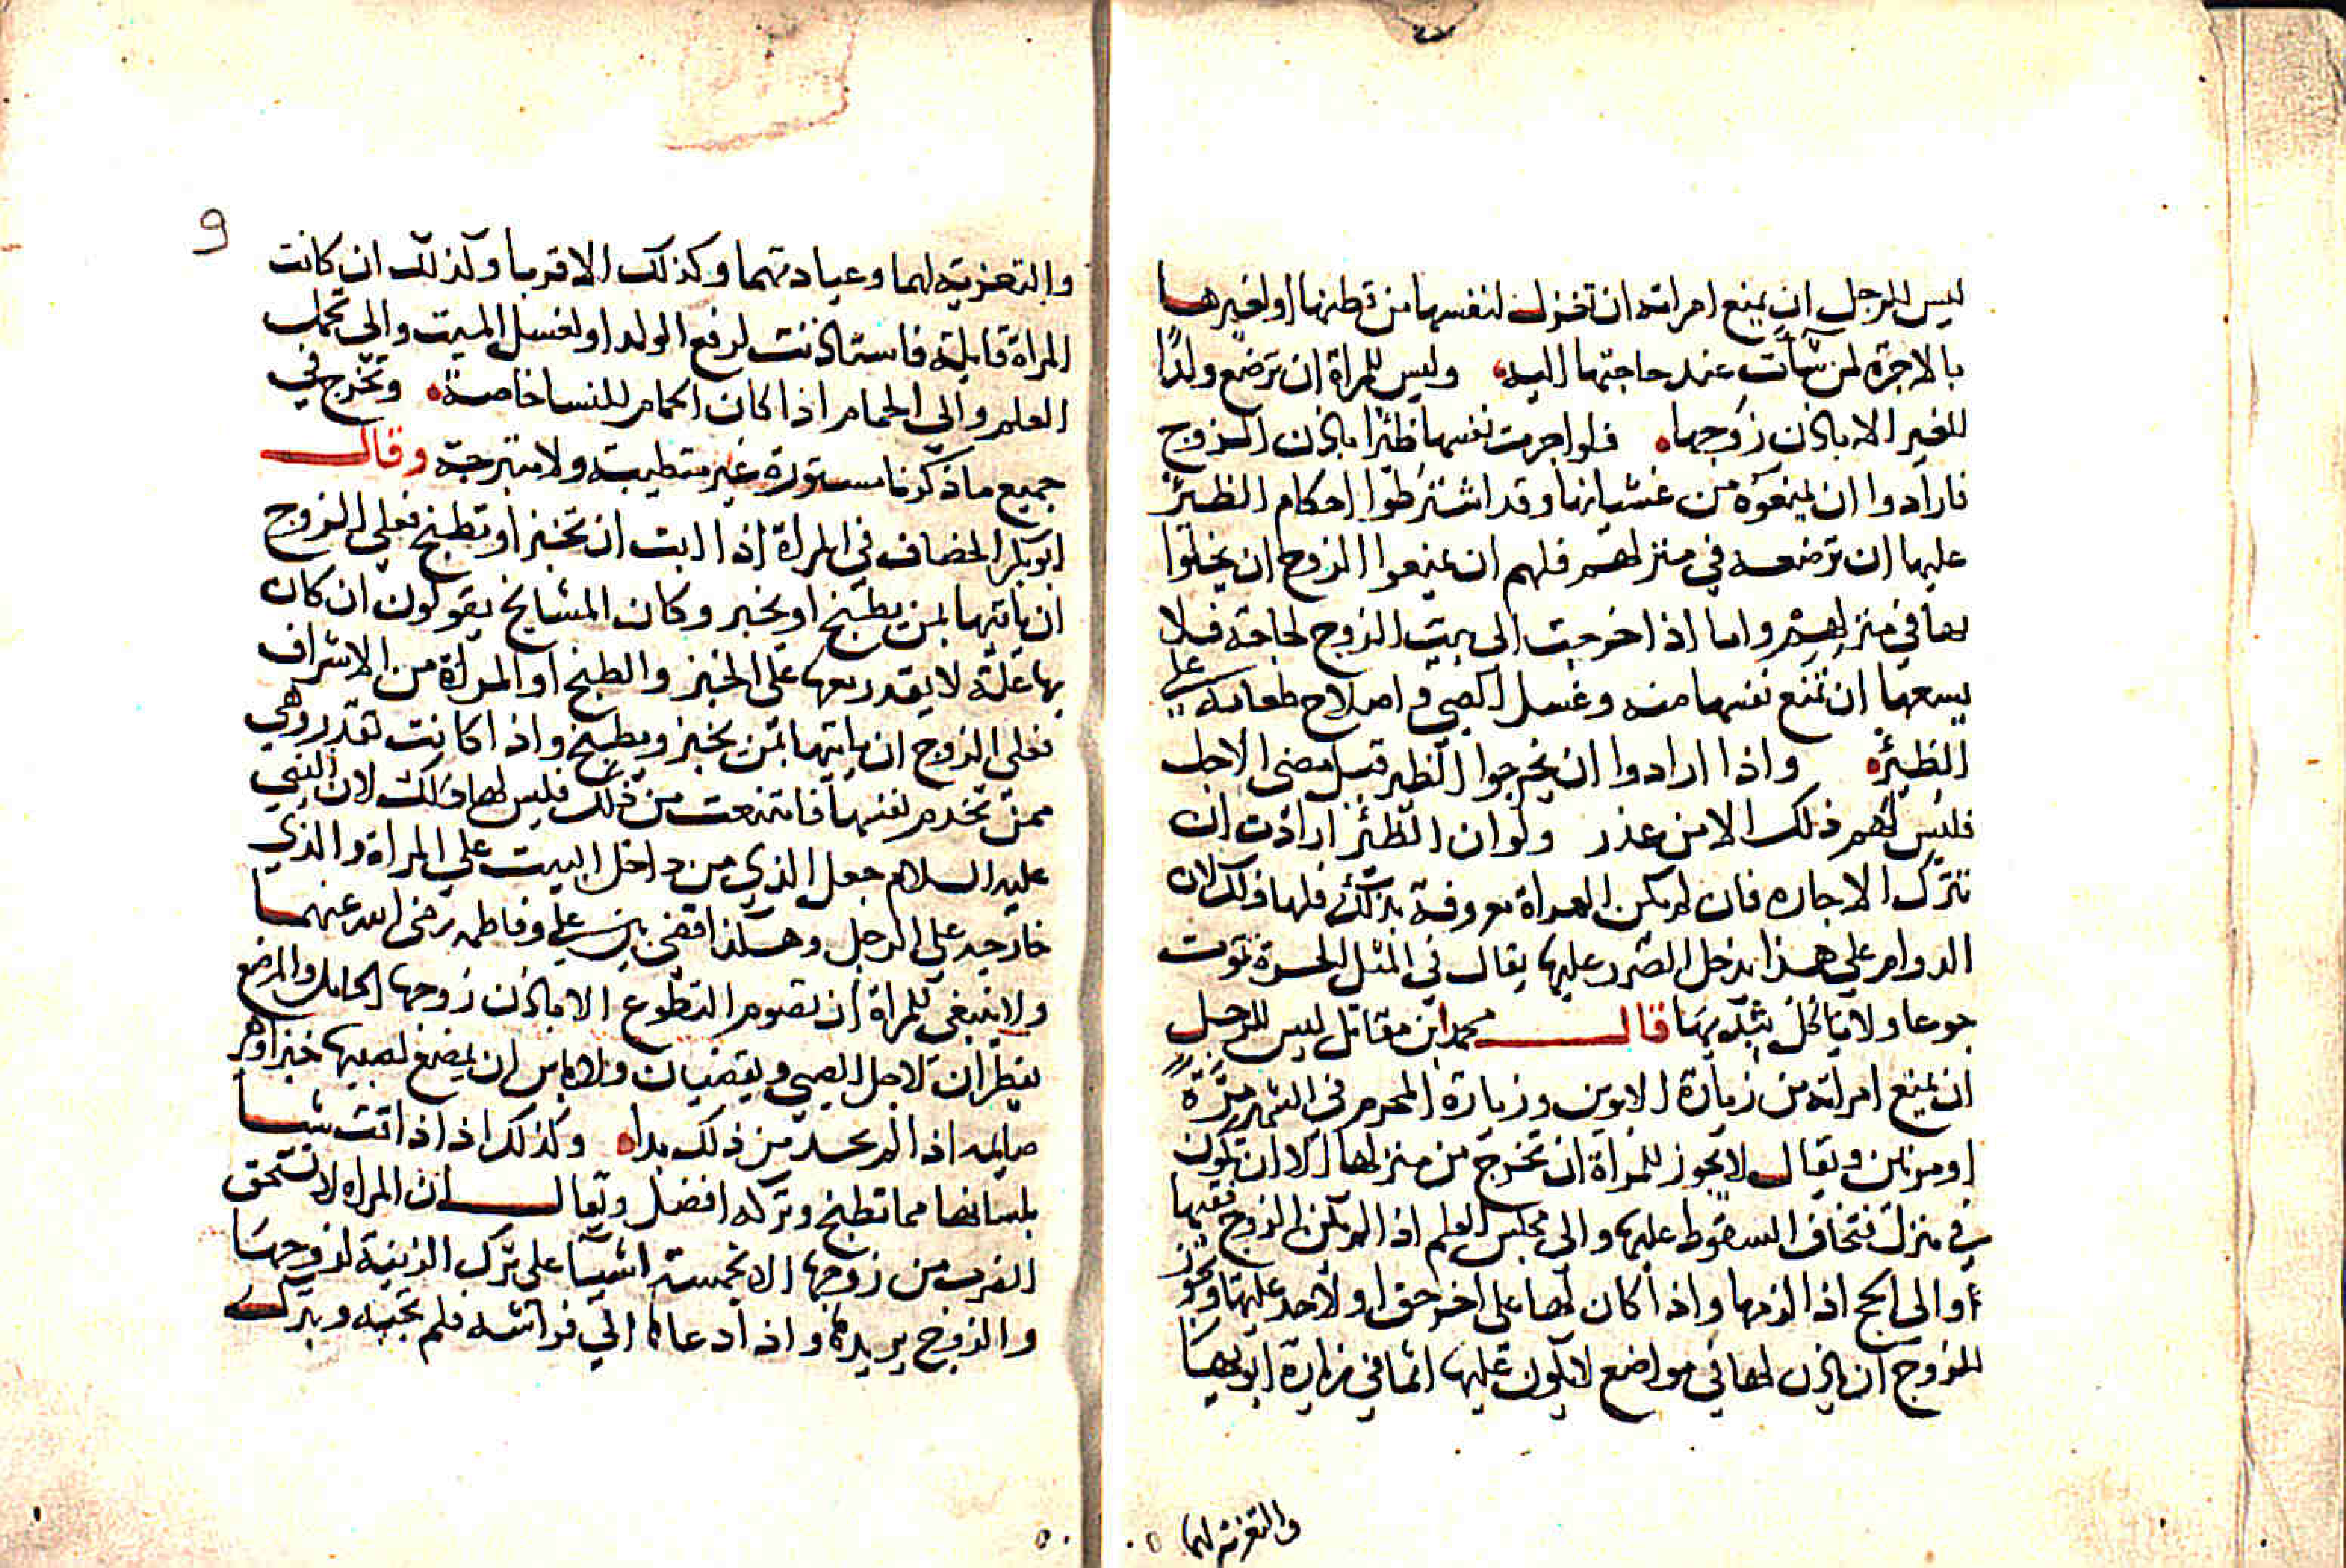 ليس للرجل ان يمنع امراته ان تغزل لنفسها من قطنها او لغيرها
بالاجرة لمن شآت عند حاجتها اليه وليس للمراة ان ترضع ولدًا
للغير الا باذن زوجها فلو اجرت نفسها ظئرًا باذن الزوج
فارادوا ان يمنعوه من غشيانها وقد اشترطوا احكام الظئر
عليها ان ترضعه في منزلهم فلهم ان يمنعوا الزوج ان يخلوا
بها في منزلهم واما اذا خرجت الى بيت الزوج لحاجة فلا
يسعها ان تمنع نفسها منه وغسل الصبي و اصلاح طعامه على
الظيره واذا ارادوا ان يخرجوا الظير قبل مضى الاجل
فليس لهم ذلك الا من عذر ولو ان الظئر ارادت ان
تترك الاجاره فان لم يكن المراة معروفة بذلك فلها ذلك لان
الدوام على هذا يدخل الضرر عليها يقال في المثل الحرة تموت
جوعا ولا تاكل بثديها قال محمد ابن مقاتل ليس للرجل
ان يمنع امراته من زيارة الابوين وزيارة المحرم في الشهر مرة
او مرتين ويقال لا يجوز للمراة ان تخرج من منزلها الا ان تكون
في منزل فتخاف السقوط عليها والى مجلس العلم اذا لم يكن الزوج فقيها
او الى الحج اذا لزمها واذا كان لها على اخر حق او لاحد عليها ويجوز
للزوج ان ياذن لها في مواضع لا يكون عليها اثما في زيارة ابويها
والتعزية لهما
9
والتعزية لهما وعيادتهما وكذلك الاقربا وكذلك ان كانت
المراة قابلة فاستاذنت لرفع الولد او لغسل الميت والى مجلس
العلم والى الحمام اذا كان الحمام للنسا خاصة وتخرج في
جميع ما ذكرنا مستورة غير متطيبة ولا متبرجة وقال
ابو بكر الخصاف في المراة اذا ابت ان تخبز او تطبخ فعلى الزوج
ان ياتيها بمن يطبخ او يخبز وكان المشايخ يقولون ان كان
بها علة لا يقدر معها على الخبز والطبخ او المراة من الاشراف
فعلى الزوج ان ياتيها بمن يخبز ويطبخ واذا كانت تقدر وهي
ممن تخدم نفسها فامتنعت من ذلك فليس لها ذلك لان النبي
عليه السلام جعل الذي من داخل البيت على المراة والذي
خارجه على الرجل وهكذا قضى بين علي وفاطمه رضى الله عنهما
ولا ينبغي للمراة ان تصوم التطوع الا باذن زوجها الحامل والمرضع
يفطران لاجل الصبي و يقضيان ولا باس ان يمضغ لصبيها خبزا وهي
صايمه اذا لم تجد من ذلك بدا وكذلك اذا ذاقت شيا
بلسانها مما تطبخ وتركه افضل ويقال ان المراه لا تستحق
الضرب من زوجها الا بخمسة اشيآ على ترك الزينة لزوجها
والزوج يريدها واذا دعاها الى فراشه فلم تجبه و بترك